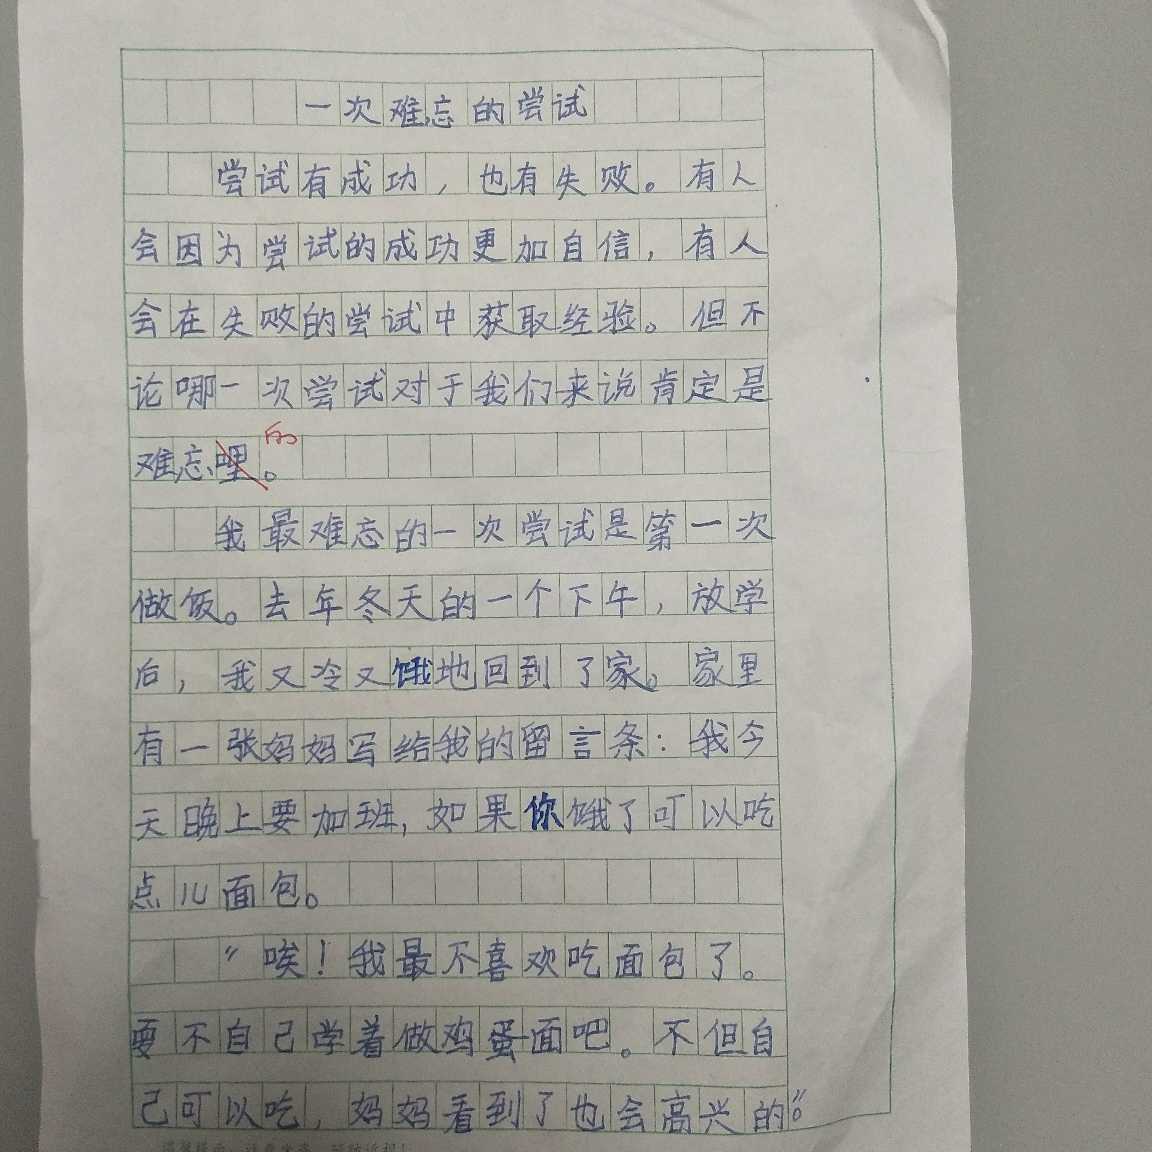 一次难忘的尝试
尝试有成功，也有失败。有人
会因为尝试的成功更加自信，有人
会在失败的尝试中获取经验。但不
论哪一次尝试对于我们来说肯定是
难忘哩。的
我最难忘的一次尝试是第一次
做饭。去年冬天的一个下午，放学
后，我又冷又饿地回到了家。家里
有一张妈妈写给我的留言条：我今
天晚上要加班，如果你饿了可以吃
点儿面包。
“唉！我最不喜欢吃面包了。
要不自己学着做鸡蛋面吧。不但自
己可以吃，妈妈看到了也会高兴的。”